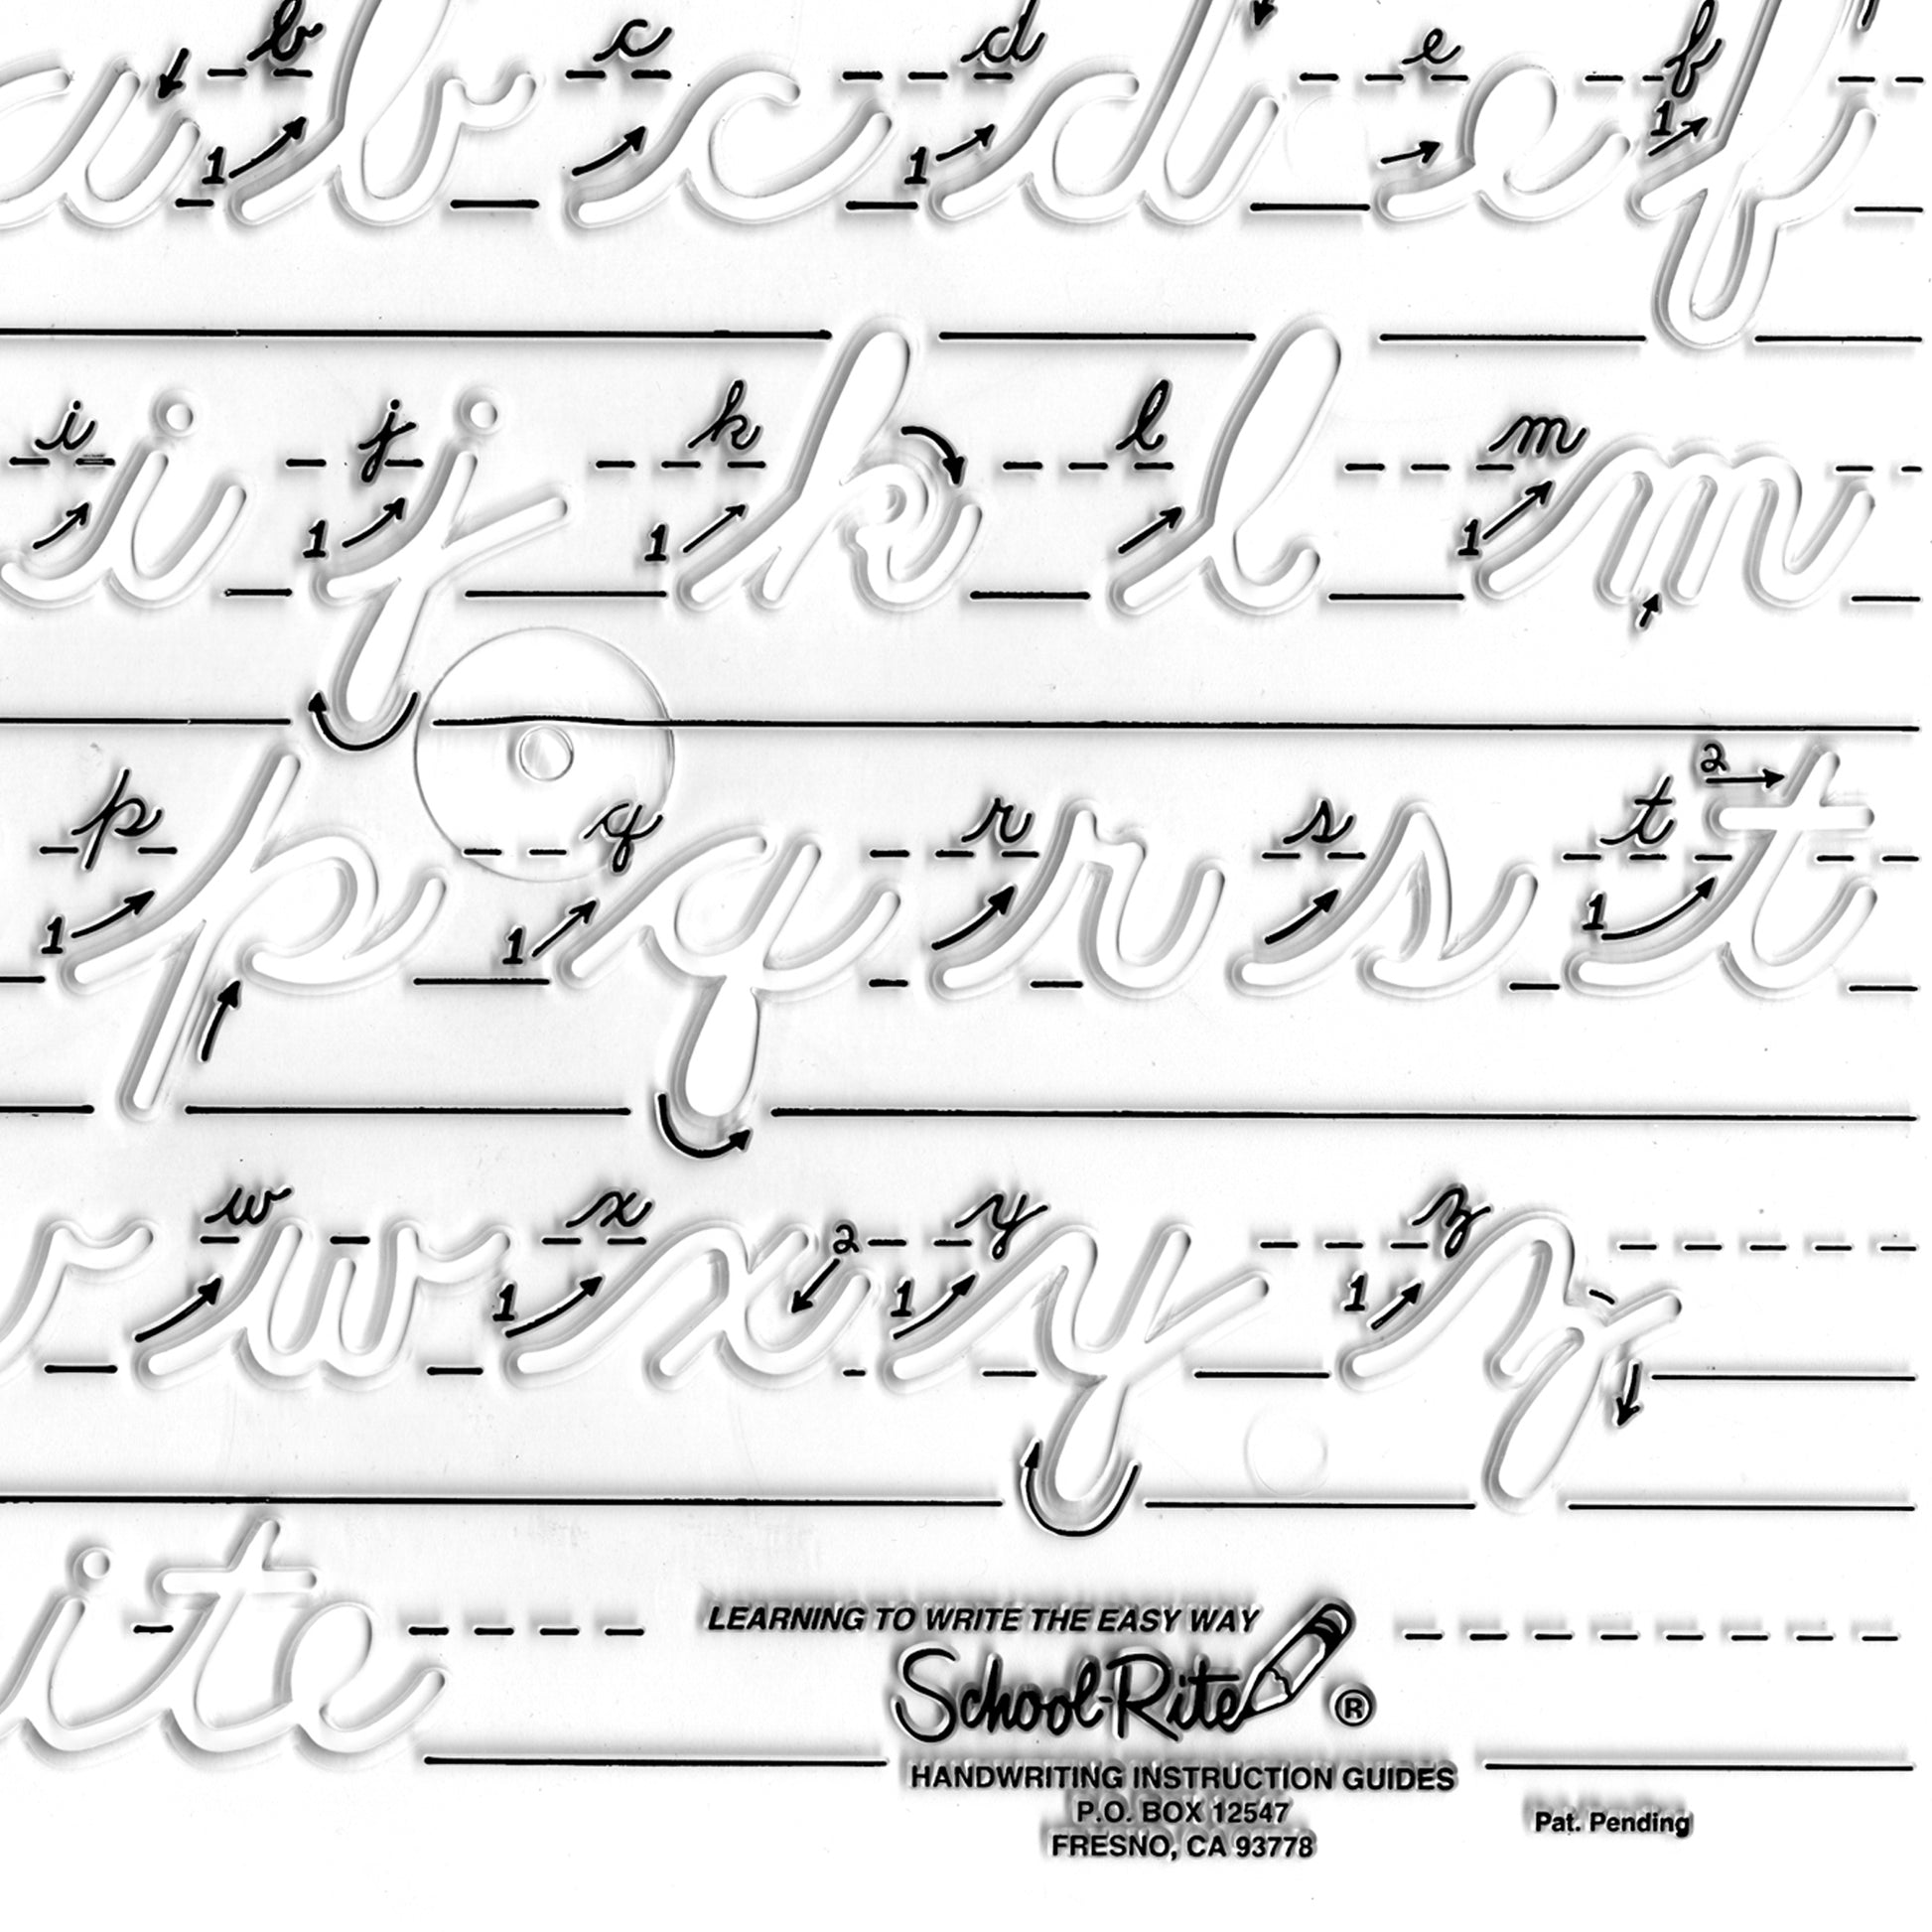 a b b c c d d e e f f
1 1 1
i i j j k k l l m m
1 1 1
2
p p q q r r s s t t
1 1 1
w w x x y y z z
2
1 1 1
ite
LEARNING TO WRITE THE EASY WAY
School-Rite ®
HANDWRITING INSTRUCTION GUIDES
P.O. BOX 12547
FRESNO, CA 93778
Pat. Pending